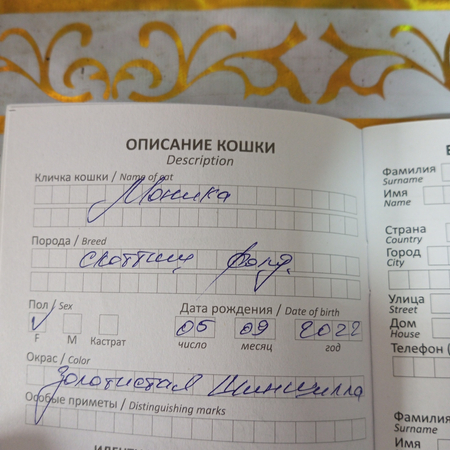 ОПИСАНИЕ КОШКИ
Description
Кличка кошки / Name of cat
Моника
Порода / Breed
скоттиш фолд.
Пол / Sex
F
M
Кастрат
Дата рождения / Date of birth
05 09 2022
число месяц год
Окрас / Color
Золотистая Шиншилла
Особые приметы / Distinguishing marks
Фамилия
Surname
Имя
Name
Страна
Country
Город
City
Улица
Street
Дом
House
Телефон (
Фамилия
Surname
Имя